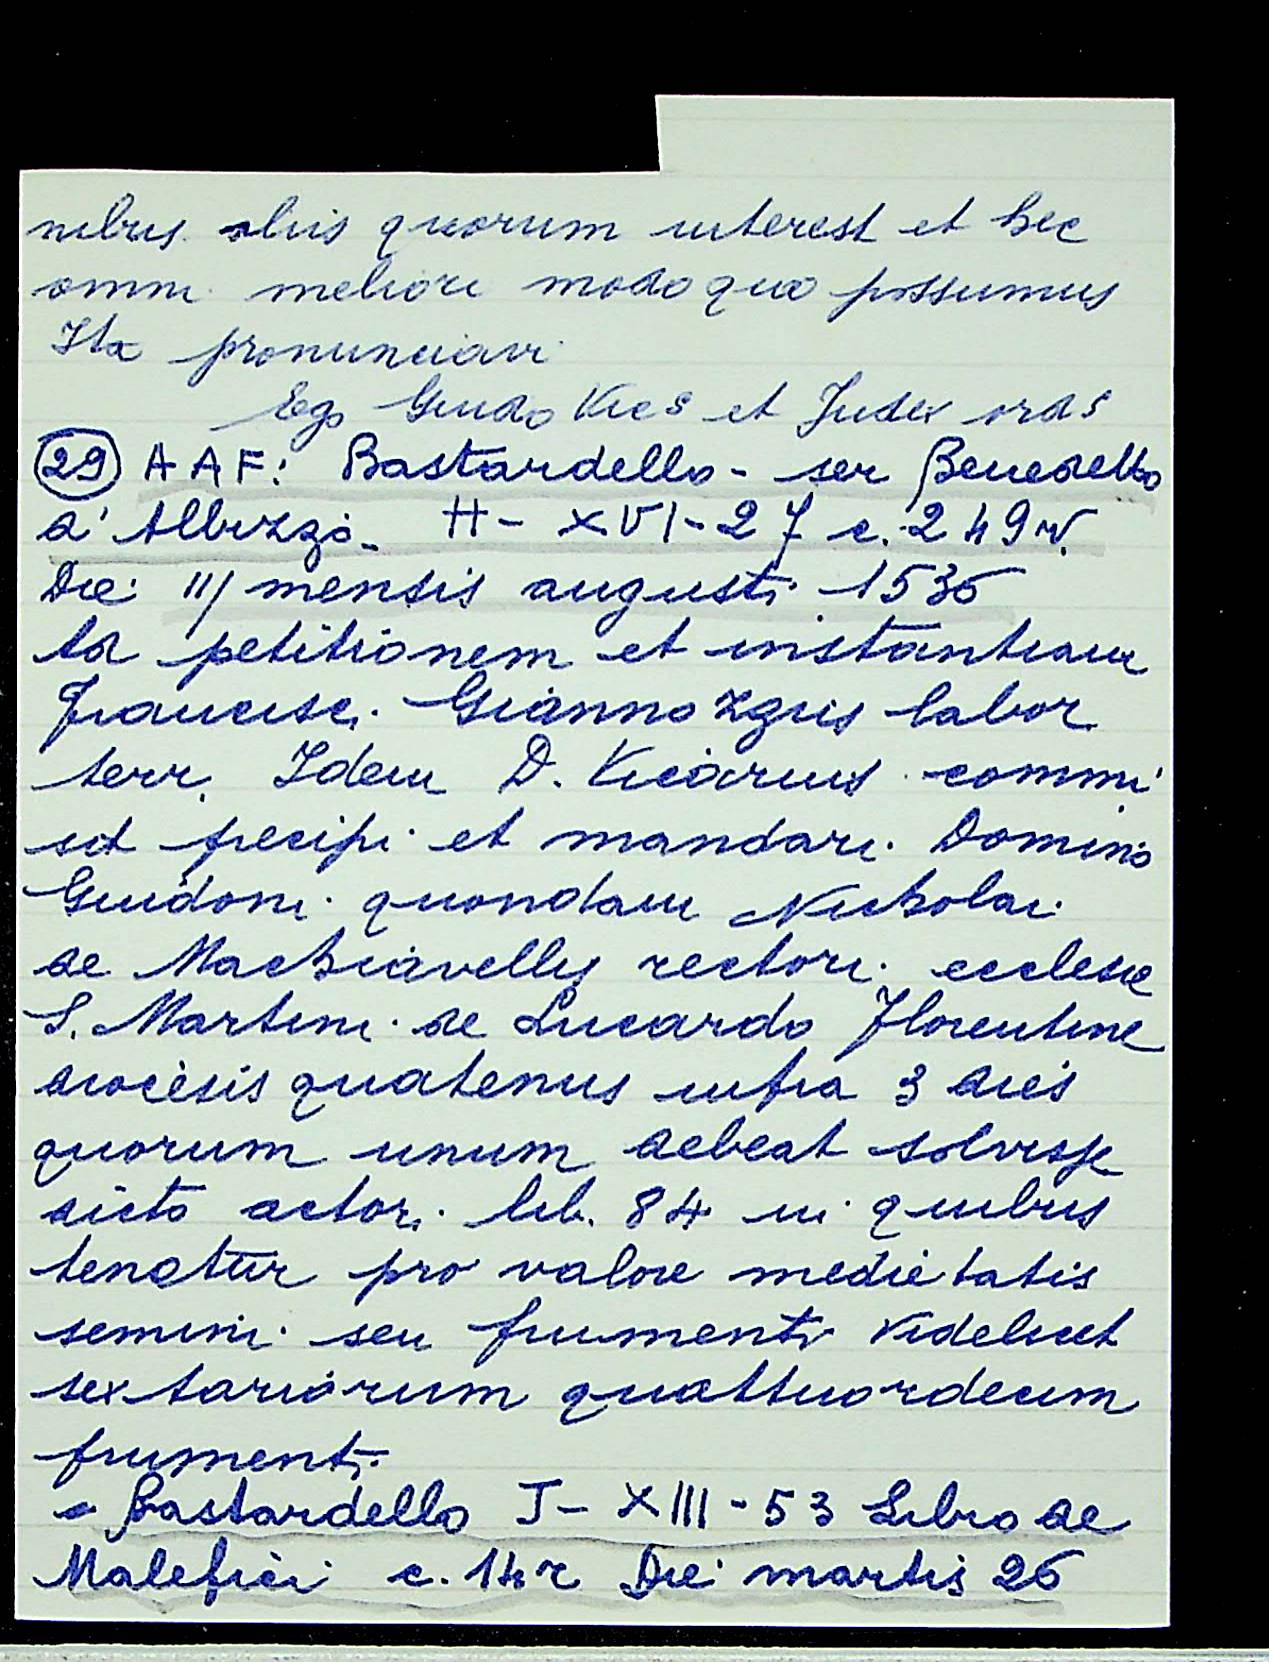 nibus aliis quorum interest et hec
omni meliori modo quo possumus
Ita pronunciavi
Ego Guido Vics et Judex ords
(29) AAF: Bastardello - ser Benedetto
d'Albizzo. H - XVI - 27 c. 249v.
Die 11/ mensis augusti 1536
Ad petitionem et instantiam
Francisci Giannozzis labor
terr. Idem D. Vicarius commi
sit precipi et mandari Domino
Guidoni quondam Nicholai
de Machiavellis rectori ecclesie
S. Martini de Lucardo Florentine
diocesis quatenus infra 3 dies
quorum unum debeat solvisse
dicto actori lib. 84 in quibus
tenetur pro valore medietatis
semini seu frumenti videlicet
sextariorum quattuordecim
frumenti
- Bastardello J - XIII - 53 Libro de
Malefici c. 14r Die martis 26